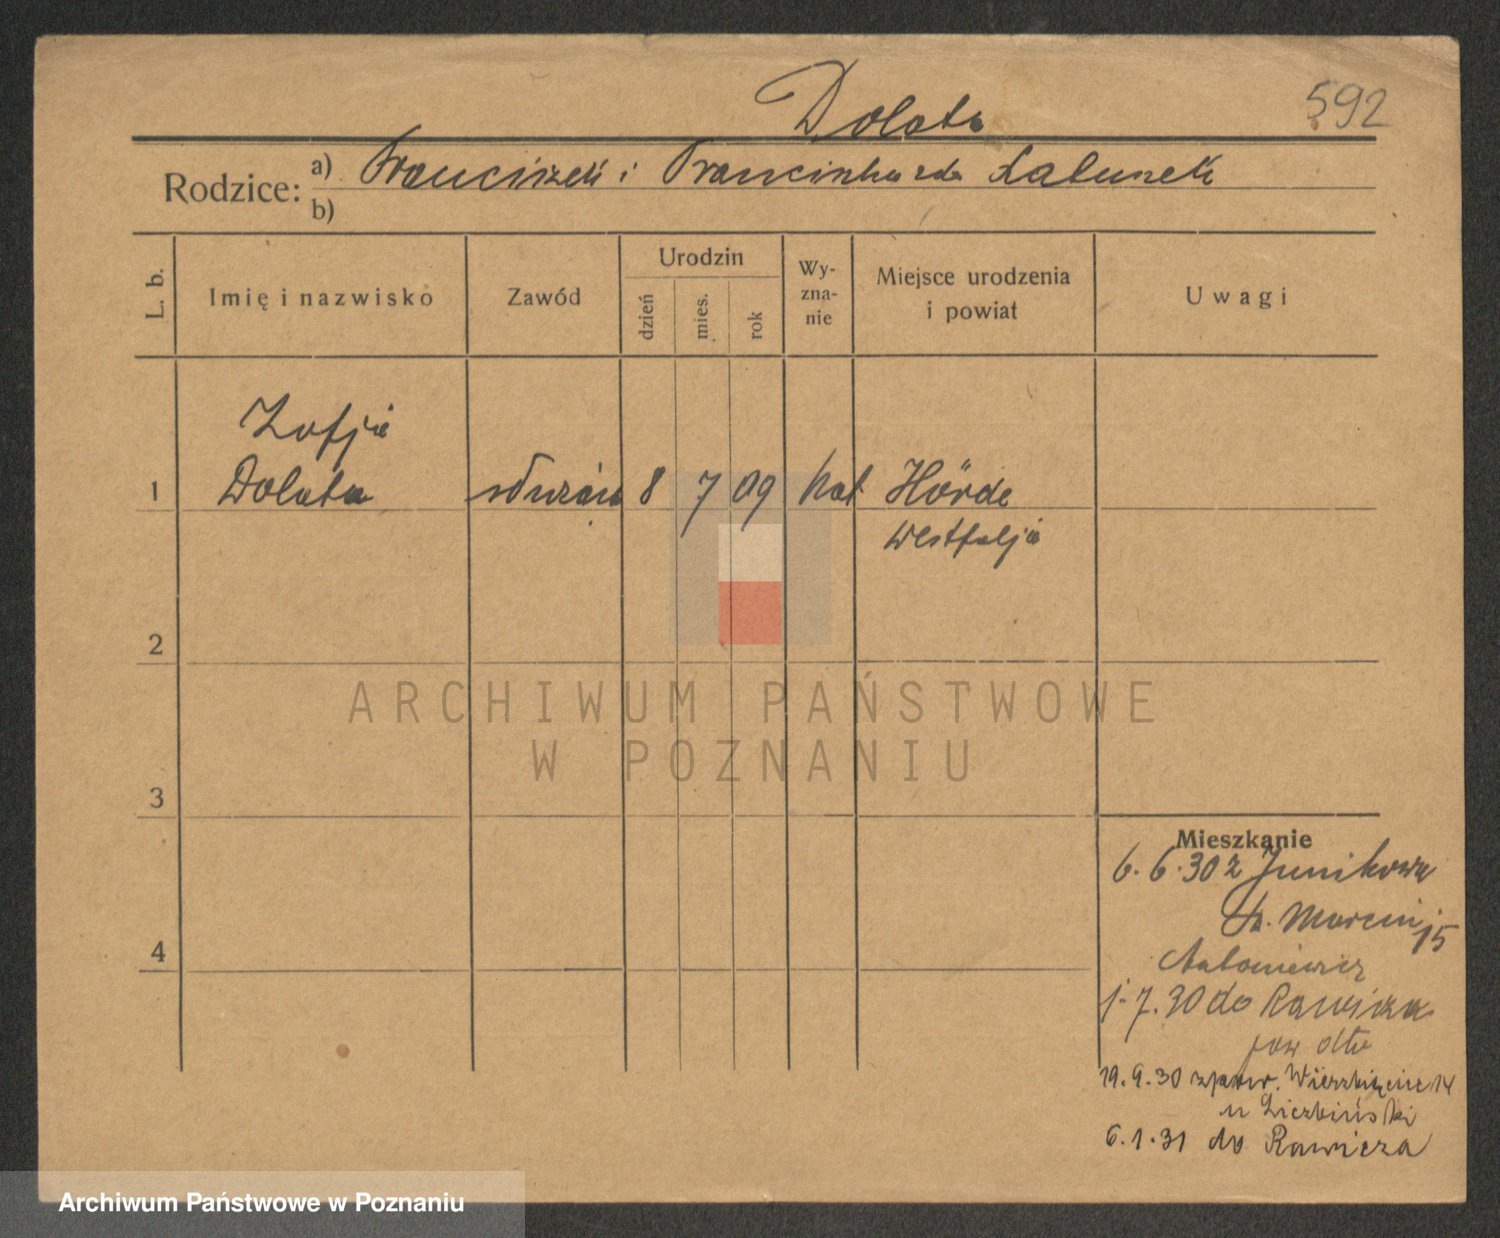 Dolata
592
Rodzice: a) Franciszek i Franciszka zd. Ratunek
b)
L. b.
Imię i nazwisko
Zawód
Urodzin
dzień
mies.
rok
Wy-
zna-
nie
Miejsce urodzenia
i powiat
Uwagi
Zofja
1 Dolata służąca 8 7 09 kat Hörde
Westfalja
2
3
4
ARCHIWUM PAŃSTWOWE
W POZNANIU
Mieszkanie
6. 6. 30 z Junikowa
św. Marcin 15
Antoniewicz
1. 7. 30 do Rawicza
pow
19. 9. 30 zpow. Wierzbięcice 14
u Liczbiński
6. 1. 31 do Rawicza
Archiwum Państwowe w Poznaniu